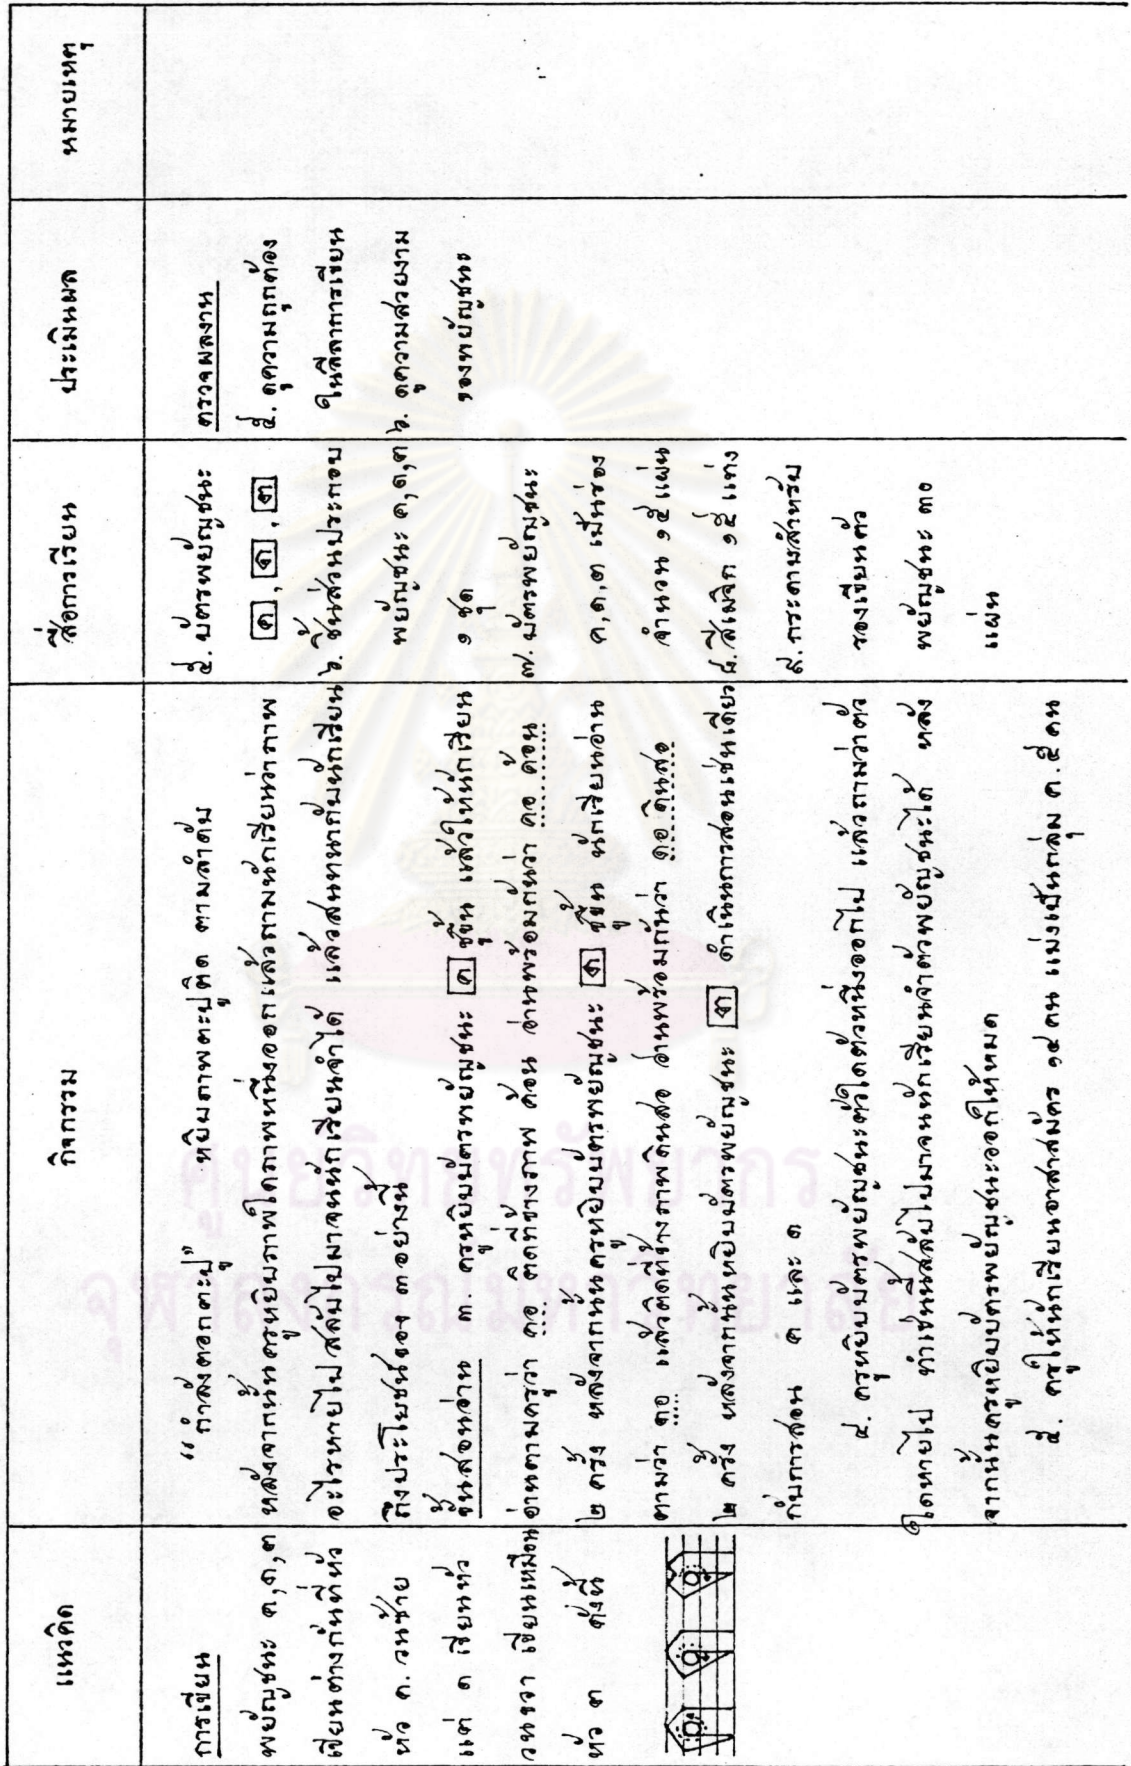 แนวคิด
การเขียน
พยัญชนะ ค,ด,ต
เขียนต่างกันที่หัว
หัว ค. วนซ้าย
แต่ ด เขียนหัว
วนขวา เขียนเหมือน
หัว ต ดังนี้
ค ด ต
กิจกรรม
"กำลังตอกตะปู" หยิบภาพตะปูติด ตามลำดับ
หลังจากนั้นครูหยิบภาพใดภาพหนึ่งออกแล้วถามนักเรียนว่าภาพ
อะไรหายไป สลับไปมาจนนักเรียนจำได้ แล้วสนทนากับนักเรียน
ถึงประโยชน์ของ อย่างนี้
ขั้นสอนอ่าน ๓. ครูหยิบบัตรพยัญชนะ ค ชูขึ้น แล้วให้นักเรียน
อ่านตามครูว่า คอ ติดที่ข้างภาพ ค้อน อ่านพร้อมกันว่า คอ ค้อน
๒ ครั้ง หลังจากนั้นครูหยิบบัตรพยัญชนะ ด ชูขึ้น นักเรียนอ่าน
ตามว่า ดอ แล้วติดที่ข้างภาพดินสอ อ่านพร้อมกันว่า ดอ ดินสอ
๒ ครั้ง หลังจากนั้นหยิบบัตรพยัญชนะ ต ดำเนินการสอนเช่นเดียว
กับการสอน ค และ ด
๔. ครูหยิบบัตรพยัญชนะตัวใดตัวหนึ่งออกไป แล้วถามว่าตัว
ใดหายไป ทำเช่นนี้สลับไปมาจนนักเรียนจำตัวพยัญชนะได้ หลัง
จากนั้นครูหยิบบัตรพยัญชนะออกให้หมด
๕. ครูให้นักเรียนอาสาสมัคร ๑๕ คน แบ่งเป็นกลุ่ม ค. ๕ คน
สื่อการเรียน
๕. บัตรพยัญชนะ
ค, ด, ต
๖. ชิ้นส่วนประกอบ
พยัญชนะ ค,ด,ต
๑ ชุด
๗. บัตรพยัญชนะ
ค,ด,ต เป็นร่อง
จำนวน ๑๕ แผ่น
๘. สีเมจิก ๑๕ แท่ง
๙. กระดาษสำหรับ
รองเขียนตัว
พยัญชนะ ๓๐
แผ่น
ประเมินผล
ตรวจผลงาน
๕. ดูความถูกต้อง
ในลีลาการเขียน
๖. ดูความสวยงาม
ของพยัญชนะ
หมายเหตุ
ศูนย์วิทยทรัพยากร
จุฬาลงกรณ์มหาวิทยาลัย